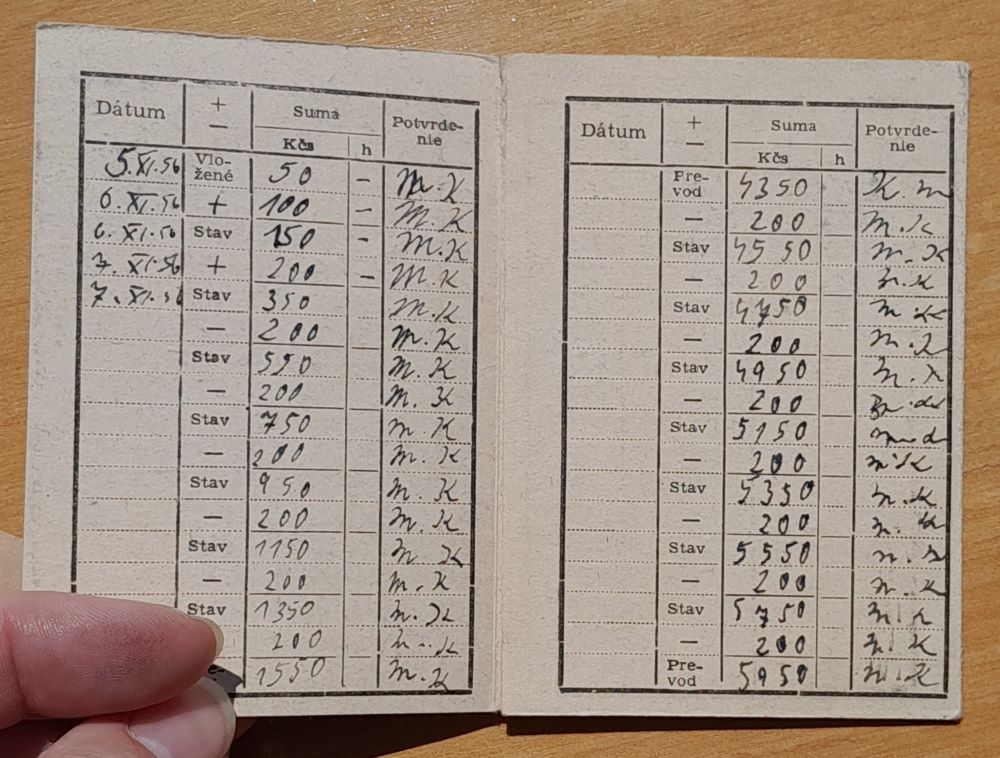 Dátum + − Suma Kčs h Potvrde-nie
5.XI.56 Vlo-žené 50 – M.K
6.XI.56 + 100 – M.K
6.XI.56 Stav 150 – M.K
7.XI.56 + 200 – M.K
7.XI.56 Stav 350 M.K
— 200 M.K
Stav 550 M.K
— 200 M.K
Stav 750 M.K
— 200 M.K
Stav 950 M.K
— 200 M.K
Stav 1150 M.K
— 200 M.K
Stav 1350 M.K
200 M.K
1550 M.K
Dátum + − Suma Kčs h Potvrde-nie
Pre-vod 4350 K.M
— 200 M.K
Stav 4550 M.K
— 200 M.K
Stav 4750 M.K
— 200 M.K
Stav 4950 M.K
— 200 M.K
Stav 5150 M.K
— 200 M.K
Stav 5350 M.K
— 200 M.K
Stav 5550 M.K
— 200 M.K
Stav 5750 M.K
— 200 M.K
Pre-vod 5950 M.K